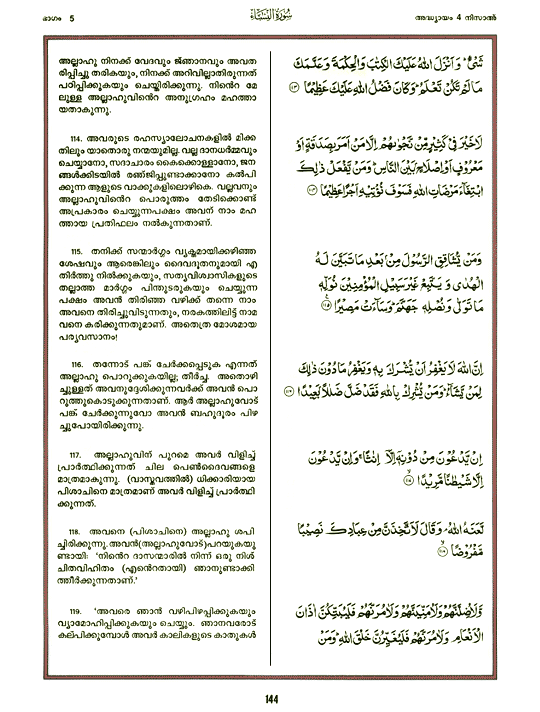 ഭാഗം 5
سُورَةُ النِّسَاء
അദ്ധ്യായം 4 നിസാഅ്
അല്ലാഹു നിനക്ക് വേദവും ജ്ഞാനവും അവത
രിപ്പിച്ചു തരികയും, നിനക്ക് അറിവില്ലാതിരുന്നത്
പഠിപ്പിക്കുകയും ചെയ്തിരിക്കുന്നു. നിന്റെ മേ
ലുള്ള അല്ലാഹുവിന്റെ അനുഗ്രഹം മഹത്താ
യതാകുന്നു.
114. അവരുടെ രഹസ്യാലോചനകളിൽ മിക്ക
തിലും യാതൊരു നന്മയുമില്ല. വല്ല ദാനധർമ്മവും
ചെയ്യാനോ, സദാചാരം കൈക്കൊള്ളാനോ, ജന
ങ്ങൾക്കിടയിൽ രഞ്ജിപ്പുണ്ടാക്കാനോ കൽപി
ക്കുന്ന ആളുടെ വാക്കുകളിലൊഴികെ. വല്ലവനും
അല്ലാഹുവിന്റെ പൊരുത്തം തേടിക്കൊണ്ട്
അപ്രകാരം ചെയ്യുന്നപക്ഷം അവന് നാം മഹ
ത്തായ പ്രതിഫലം നൽകുന്നതാണ്.
115. തനിക്ക് സന്മാർഗ്ഗം വ്യക്തമായിക്കഴിഞ്ഞ
ശേഷവും ആരെങ്കിലും ദൈവദൂതനുമായി എ
തിർത്തു നിൽക്കുകയും, സത്യവിശ്വാസികളുടെ
തല്ലാത്ത മാർഗ്ഗം പിന്തുടരുകയും ചെയ്യുന്ന
പക്ഷം അവൻ തിരിഞ്ഞ വഴിക്ക് തന്നെ നാം
അവനെ തിരിച്ചുവിടുന്നതും, നരകത്തിലിട്ട് നാമ
വനെ കരിക്കുന്നതുമാണ്. അതെത്ര മോശമായ
പര്യവസാനം!
116. തന്നോട് പങ്ക് ചേർക്കപ്പെടുക എന്നത്
അല്ലാഹു പൊറുക്കുകയില്ല; തീർച്ച. അതൊഴി
ച്ചുള്ളത് അവനുദ്ദേശിക്കുന്നവർക്ക് അവൻ പൊ
റുത്തുകൊടുക്കുന്നതാണ്. ആർ അല്ലാഹുവോട്
പങ്ക് ചേർക്കുന്നുവോ അവൻ ബഹുദൂരം പിഴ
ച്ചുപോയിരിക്കുന്നു.
117. അല്ലാഹുവിന് പുറമെ അവർ വിളിച്ച്
പ്രാർത്ഥിക്കുന്നത് ചില പെൺദൈവങ്ങളെ
മാത്രമാകുന്നു. (വാസ്തവത്തിൽ) ധിക്കാരിയായ
പിശാചിനെ മാത്രമാണ് അവർ വിളിച്ച് പ്രാർത്ഥി
ക്കുന്നത്.
118. അവനെ (പിശാചിനെ) അല്ലാഹു ശപി
ച്ചിരിക്കുന്നു. അവൻ(അല്ലാഹുവോട്)പറയുകയു
ണ്ടായി: 'നിന്റെ ദാസന്മാരിൽ നിന്ന് ഒരു നിശ്
ചിതവിഹിതം (എന്റെതായി) ഞാനുണ്ടാക്കി
ത്തീർക്കുന്നതാണ്.'
119. 'അവരെ ഞാൻ വഴിപിഴപ്പിക്കുകയും
വ്യാമോഹിപ്പിക്കുകയും ചെയ്യും. ഞാനവരോട്
കല്പിക്കുമ്പോൾ അവർ കാലികളുടെ കാതുകൾ
شَىْءٍ وَأَنزَلَ اللهُ عَلَيْكَ الْكِتٰبَ وَالْحِكْمَةَ وَعَلَّمَكَ
مَا لَمْ تَكُنْ تَعْلَمُ وَكَانَ فَضْلُ اللهِ عَلَيْكَ عَظِيمًا ١١٣
لَا خَيْرَ فِى كَثِيرٍ مِّن نَّجْوٰىهُمْ إِلَّا مَنْ أَمَرَ بِصَدَقَةٍ أَوْ
مَعْرُوفٍ أَوْ إِصْلَاحٍ بَيْنَ النَّاسِ وَمَن يَفْعَلْ ذٰلِكَ
ابْتِغَاءَ مَرْضَاتِ اللهِ فَسَوْفَ نُؤْتِيهِ أَجْرًا عَظِيمًا ١١٤
وَمَن يُشَاقِقِ الرَّسُولَ مِنْ بَعْدِ مَا تَبَيَّنَ لَهُ
الْهُدٰى وَيَتَّبِعْ غَيْرَ سَبِيلِ الْمُؤْمِنِينَ نُوَلِّهِ
مَا تَوَلّٰى وَنُصْلِهِ جَهَنَّمَ وَسَاءَتْ مَصِيرًا ١١٥
إِنَّ اللهَ لَا يَغْفِرُ أَنْ يُّشْرَكَ بِهِ وَيَغْفِرُ مَا دُونَ ذٰلِكَ
لِمَنْ يَّشَاءُ وَمَنْ يُّشْرِكْ بِاللهِ فَقَدْ ضَلَّ ضَلٰلًا بَعِيدًا ١١٦
إِنْ يَّدْعُونَ مِنْ دُونِهِ إِلَّا إِنٰثًا وَإِنْ يَّدْعُونَ
إِلَّا شَيْطٰنًا مَّرِيدًا ١١٧
لَّعَنَهُ اللهُ وَقَالَ لَأَتَّخِذَنَّ مِنْ عِبَادِكَ نَصِيبًا
مَّفْرُوضًا ١١٨
وَّلَأُضِلَّنَّهُمْ وَلَأُمَنِّيَنَّهُمْ وَلَآمُرَنَّهُمْ فَلَيُبَتِّكُنَّ آذَانَ
الْأَنْعَامِ وَلَآمُرَنَّهُمْ فَلَيُغَيِّرُنَّ خَلْقَ اللهِ وَمَنْ
144